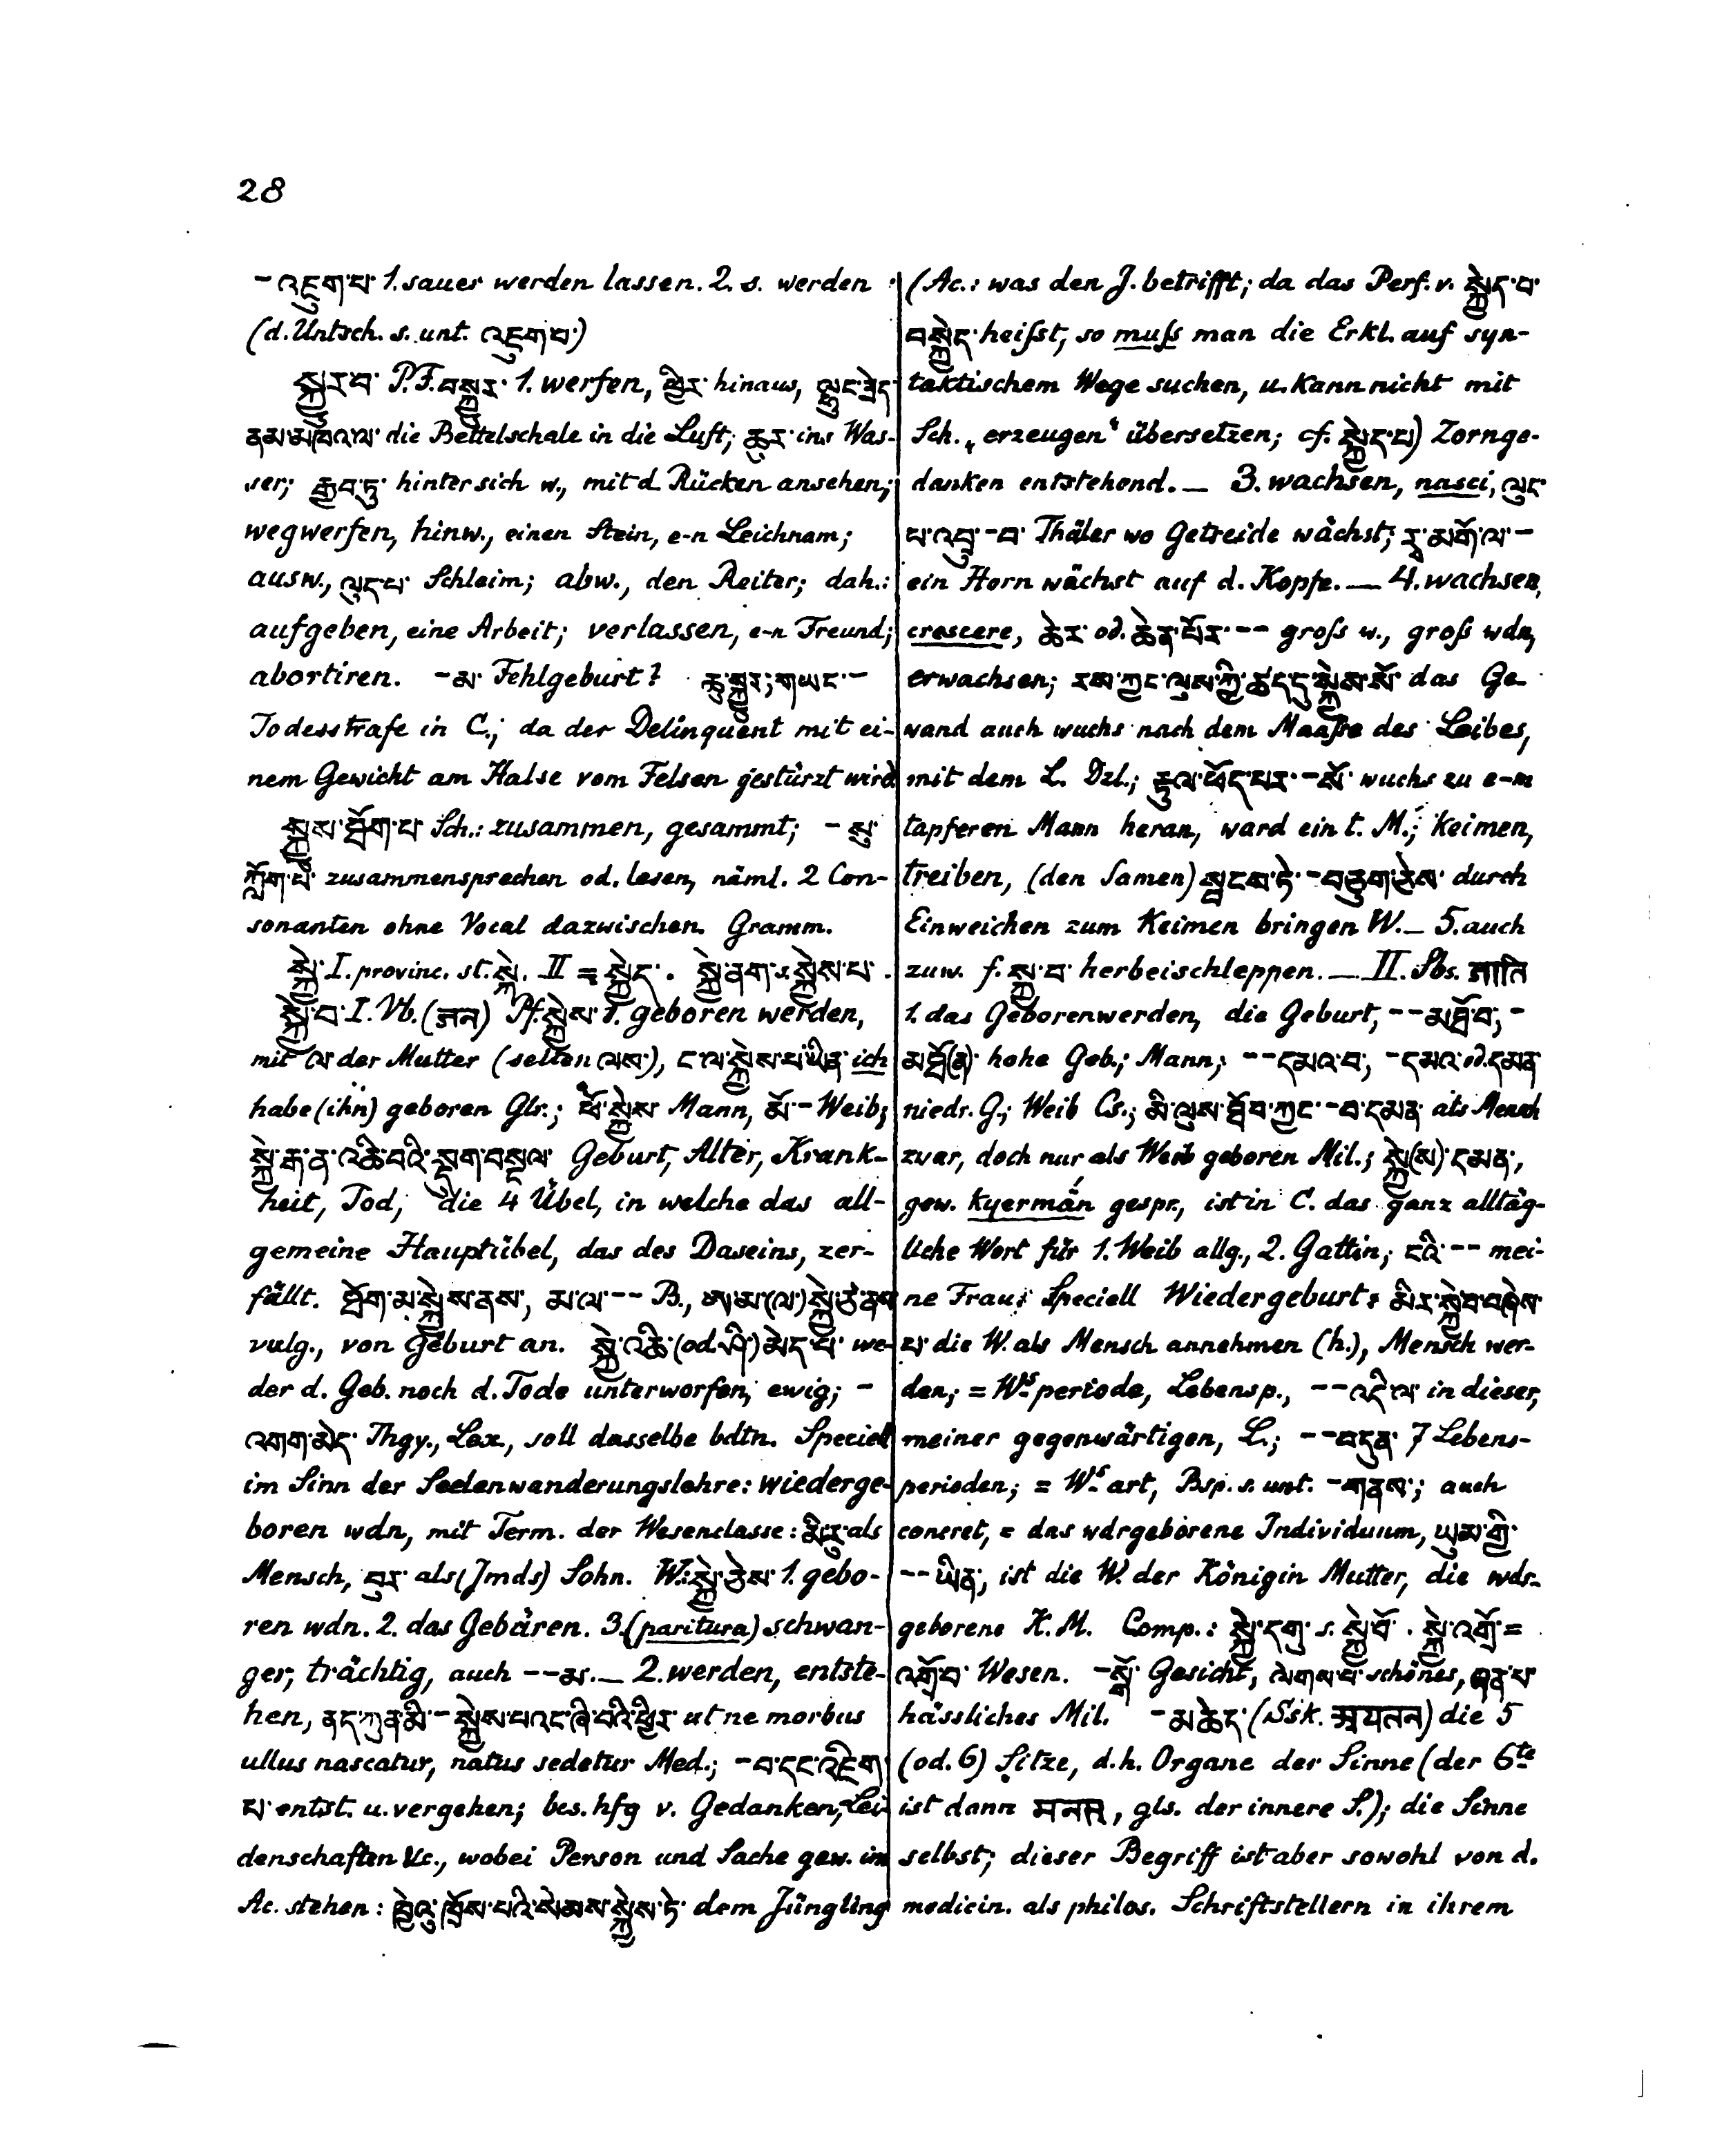 28
-འཇུག་པ་ 1. sauer werden lassen. 2. s. werden
(d. Untsch. s. unt. འཇུག་པ་)
སྐྱུར་བ་ P. F. བསྐྱུར་ 1. werfen, ཕྱིར་ hinaus, ལྷུང་བཟེད་
ནམ་མཁའ་ལ་ die Bettelschale in die Luft; ཆུར་ ins Was-
ser; རྒྱབ་ཏུ་ hinter sich w., mit d. Rücken ansehen;
wegwerfen, hinw., einen Stein, e-n Leichnam;
ausw., ལུད་པ་ Schleim; abw., den Reiter; dah.:
aufgeben, eine Arbeit; verlassen, e-n Freund;
abortiren. -མ་ Fehlgeburt? ཆུ་སྐྱུར; གཡང་-
Todesstrafe in C.; da der Delinquent mit ei-
nem Gewicht am Halse vom Felsen gestürzt wird.
སྐྱུས་ཀློག་པ་ Sch.: zusammen, gesammt; -སུ་
ཀློག་པ་ zusammensprechen od. lesen, näml. 2 Con-
sonanten ohne Vocal dazwischen. Gramm.
སྐྱེ་ I. provinc. st. སྐེ. II = སྐྱེད་. སྐྱེ་ནག་ s. སྐྱེས་པ་.
སྐྱེ་བ་ I. Vb. (जन) Pf. སྐྱེས་ 1. geboren werden,
mit ལ་ der Mutter (selten ལས་), ང་ལ་སྐྱེས་པ་ཡིན་ ich
habe (ihn) geboren Glr.; ཕོ་སྐྱེས་ Mann, མོ་- Weib;
སྐྱེ་རྒ་ན་འཆི་བའི་སྡུག་བསྔལ་ Geburt, Alter, Krank-
heit, Tod, die 4 Übel, in welche das all-
gemeine Hauptübel, das des Daseins, zer-
fällt. ཐོག་མ་སྐྱེས་ནས་, མ་ལ་-- B., ཨ་མ་(ལ་)སྐྱེ་ཙ་ནས་
vulg., von Geburt an. སྐྱེ་འཆི་(od. ཤི་)མེད་པ་ we-
der d. Geb. noch d. Tode unterworfen, ewig; -
འགག་མེད་ Thgy., Lex., soll dasselbe bdtn. Speciell
im Sinn der Seelenwanderungslehre: wiederge-
boren wdn, mit Term. der Wesenclasse: མིར་ als
Mensch, བུར་ als (Jmds) Sohn. W.: སྐྱེ་ཅེས་ 1. gebo-
ren wdn. 2. das Gebären. 3. (paritura) schwan-
ger, trächtig, auch --མ་. — 2. werden, entste-
hen, ནད་ཀུན་མི་-སྐྱེས་པའང་ཞི་བའི་ཕྱིར་ ut ne morbus
ullus nascatur, natus sedetur Med.; -བ་དང་འཇིག་
པ་ entst. u. vergehen; bes. hfg v. Gedanken, Lei-
denschaften &c., wobei Person und Sache gew. im
Ac. stehen: ཁྱེའུ་ཁྲོས་པའི་སེམས་སྐྱེས་ཏེ་ dem Jüngling
(Ac.: was den J. betrifft; da das Perf. v. སྐྱེད་པ་
བསྐྱེད་ heißt, so muß man die Erkl. auf syn-
taktischem Wege suchen, u. kann nicht mit
Sch. „erzeugen“ übersetzen; cf. སྐྱེད་པ་) Zornge-
danken entstehend. — 3. wachsen, nasci, ལུང་
པ་འབྲུ་-བ་ Thäler wo Getreide wächst; རྭ་མགོ་ལ་-
ein Horn wächst auf d. Kopfe. — 4. wachsen,
crescere, ཆེར་ od. ཆེན་པོར་-- groß w., groß wdn,
erwachsen; རས་ཀྱང་ལུས་ཀྱི་ཚད་དུ་སྐྱེས་སོ་ das Ge-
wand auch wuchs nach dem Maaße des Leibes,
mit dem L. Dzl.; རྟུལ་ཕོད་པར་-སོ་ wuchs zu e-m
tapferen Mann heran, ward ein t. M.; keimen,
treiben, (den Samen) སྦངས་ཏེ་-བཅུག་ཅེས་ durch
Einweichen zum Keimen bringen W. — 5. auch
zuw. f. སྐྱ་བ་ herbeischleppen. — II. Sbs. जाति
1. das Geborenwerden, die Geburt, --མཐོ་བ་, -
མཐོ(ན)་ hohe Geb.; Mann; --དམའ་བ་, -དམའ་ od. དམན་
niedr. G.; Weib Cs.; མི་ལུས་ཐོབ་ཀྱང་-བ་དམན་ als Mensch
zwar, doch nur als Weib geboren Mil.; སྐྱེ(ས)་དམན་,
gew. kyermán gespr., ist in C. das ganz alltäg-
liche Wort für 1. Weib allg., 2. Gattin; ངའི་-- mei-
ne Frau; Speciell Wiedergeburt: མིར་སྐྱེ་བ་བཞེས་
པ་ die W. als Mensch annehmen (h.), Mensch wer-
den; = Ws periode, Lebensp., --འདི་ལ་ in dieser,
meiner gegenwärtigen, L.; --བདུན་ 7 Lebens-
perioden; = Ws art, Bsp. s. unt. -གནས་; auch
concret, = das wdrgeborene Individuum, ཡུམ་གྱི་
--ཡིན་, ist die W. der Königin Mutter, die wdr-
geborene K. M. Comp.: སྐྱེ་དགུ་ s. སྐྱེ་བོ་. སྐྱེ་འགྲོ་ =
འགྲོ་བ་ Wesen. -སྒོ་ Gesicht, ལེགས་པ་ schönes, ངན་པ་
hässliches Mil. -མཆེད་ (Ssk. अयतन) die 5
(od. 6) Sitze, d. h. Organe der Sinne (der 6te
ist dann मनस्, gls. der innere S.); die Sinne
selbst; dieser Begriff ist aber sowohl von d.
medicin. als philos. Schriftstellern in ihrem